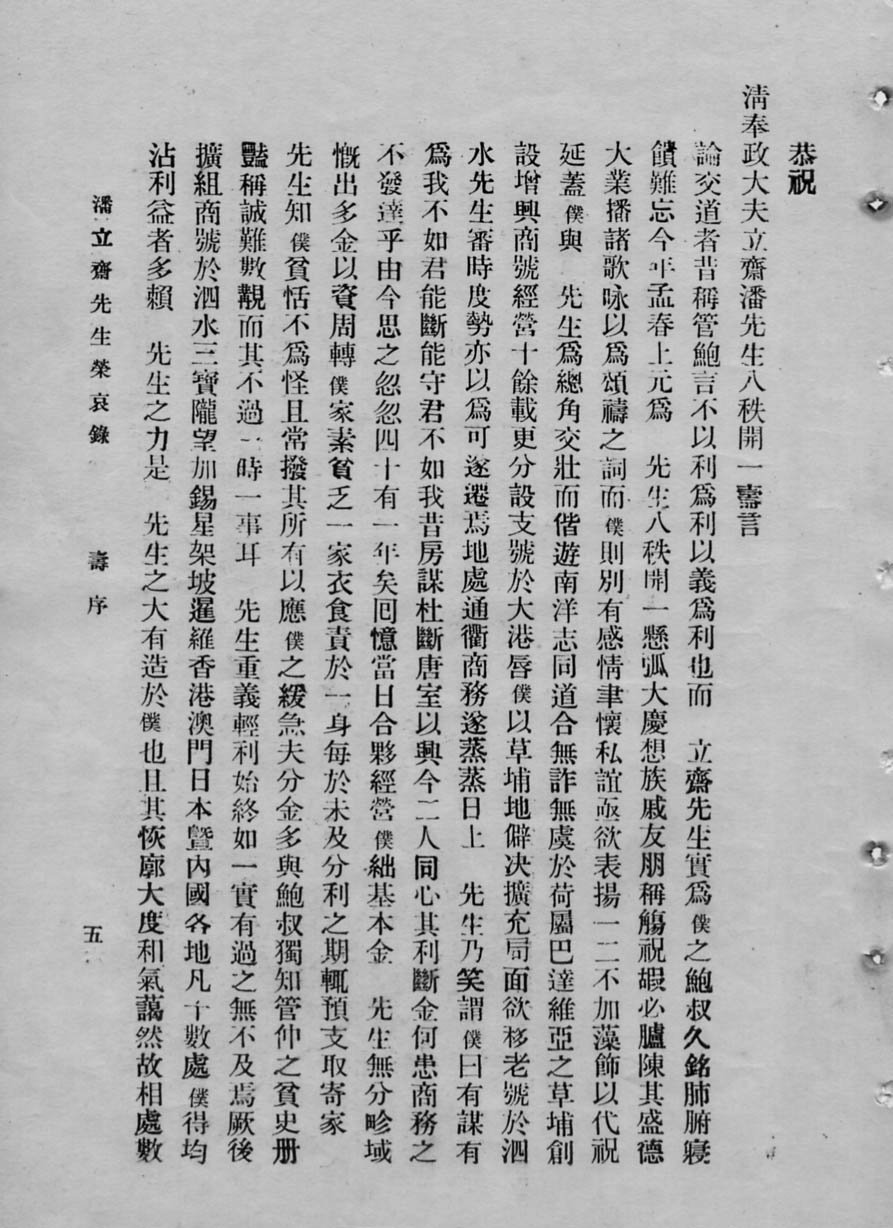 恭祝
清奉政大夫立齋潘先生八秩開一壽言
論交道者昔稱管鮑言不以利爲利以義爲利也而　立齋先生實爲僕之鮑叔久銘肺腑寢
饋難忘今年孟春上元爲　先生八秩開一懸弧大慶想族戚友朋稱觴祝嘏必臚陳其盛德
大業播諸歌咏以爲頌禱之詞而僕則別有感情聿懷私誼亟欲表揚一二不加藻飾以代祝
延蓋僕與　先生爲總角交壯而偕遊南洋志同道合無詐無虞於荷屬巴達維亞之草埔創
設增興商號經營十餘載更分設支號於大港唇僕以草埔地僻决擴充局面欲移老號於泗
水先生審時度勢亦以爲可遂遷焉地處通衢商務遂蒸蒸日上　先生乃笑謂僕曰有謀有
爲我不如君能斷能守君不如我昔房謀杜斷唐室以興今二人同心其利斷金何患商務之
不發達乎由今思之忽忽四十有一年矣回憶當日合夥經營僕絀基本金　先生無分畛域
慨出多金以資周轉僕家素貧乏一家衣食責於一身每於未及分利之期輒預支取寄家
先生知僕貧恬不爲怪且常撥其所有以應僕之緩急夫分金多與鮑叔獨知管仲之貧史册
豔稱誠難數覯而其不過一時一事耳　先生重義輕利始終如一實有過之無不及焉厥後
擴組商號於泗水三寶隴望加錫星架坡暹維香港澳門日本暨內國各地凡十數處僕得均
沾利益者多賴　先生之力是　先生之大有造於僕也且其恢廓大度和氣藹然故相處數
潘立齋先生榮哀錄　壽序　五